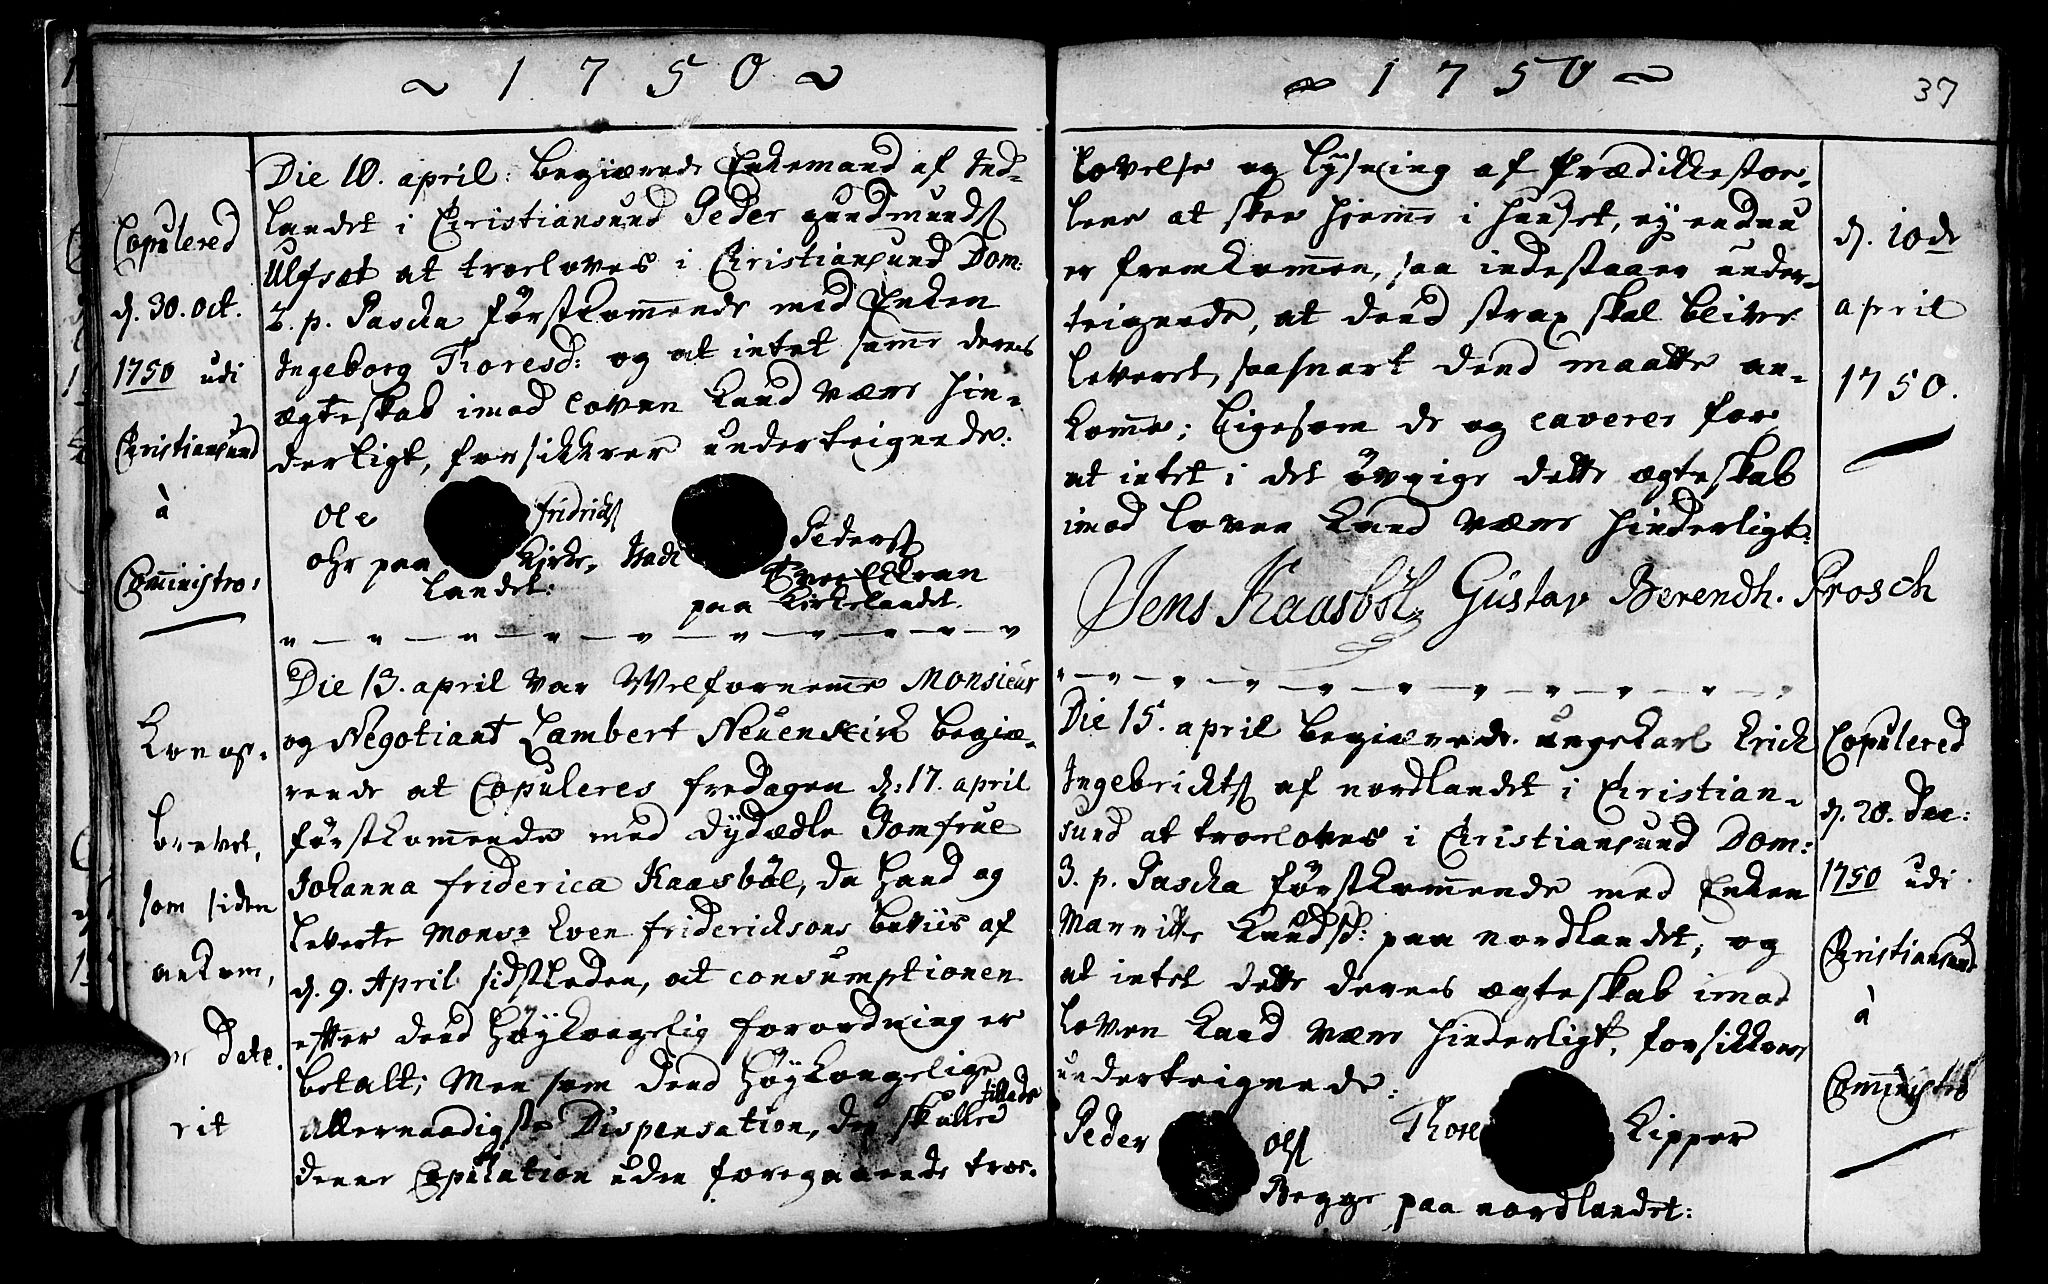 ~ 1750 ~
Copulered
d. 30. Oct.
1750 udi
Christiansund
à
Comministro:
Die 10. april: begiærede Enkemand af Ind-
landet i Christiansund Peder gundmunds
Ulfsæt at troeloves i Christiansund Dom:
2. p. Pascha førstkommende med Enken
Ingeborg Thoresd: og at intet samme deres
ægteskab imod loven kand være hin-
derligt, forsikkrer undertegnede:
Ole fridrichs
ohr paa Kirke-
landet:
Peders
paa Kirkelandet.
Die 13. april var Welfornemme Monsieur
og Negotiant Lambert Neuenkirk begiæ-
rende at Copuleres fredagen d: 17. april
førstkommende med dydædle Jomfrue
Johanna friderica Kaasbøl, da hand og
leverte Monsr Even fridericksons beviis af
d. 9. April sidstleden, at consumptionen
efter dend Høykongelig forordning er
betalt; Men som dend Høykongelige
allernaadigste Dispensation, der skulle tillade
denne Copulation uden foregaaende troe-
brevet,
som siden
ankom,
Date.
rit
~ 1750 ~
37
lovelse og lysning af Prædikkestoe-
lene at skee hiemme i Huuset, ey endnu
er fremkommen, saa indestaaer under-
teignede, at dend strax skal blive
leveret, saasnart dend maatte an-
komme; Ligesom de og caverer for,
at intet i det øvrige dette ægteskab
imod loven kand være hinderligt:
Jens Kaasbøl Gustav Berendh. Prosch
d. 10de
april
1750.
Die 15. april begiærede ungekarl Erick
Ingebrickts af nordlandet i Christian-
sund at troeloves i Christiansund Dom:
3. p. Pascha førstkommende med Enken
Maritte Knudsd: paa nordlandet, og
at intet dette deres ægteskab imod
loven kand være hinderligt, forsikkrer
underteignede:
Peder Ols
Thore Kipper
Begge paa nordlandet:
Copulered
d. 20. Dec:
1750 udi
Christiansund
à
Comministro